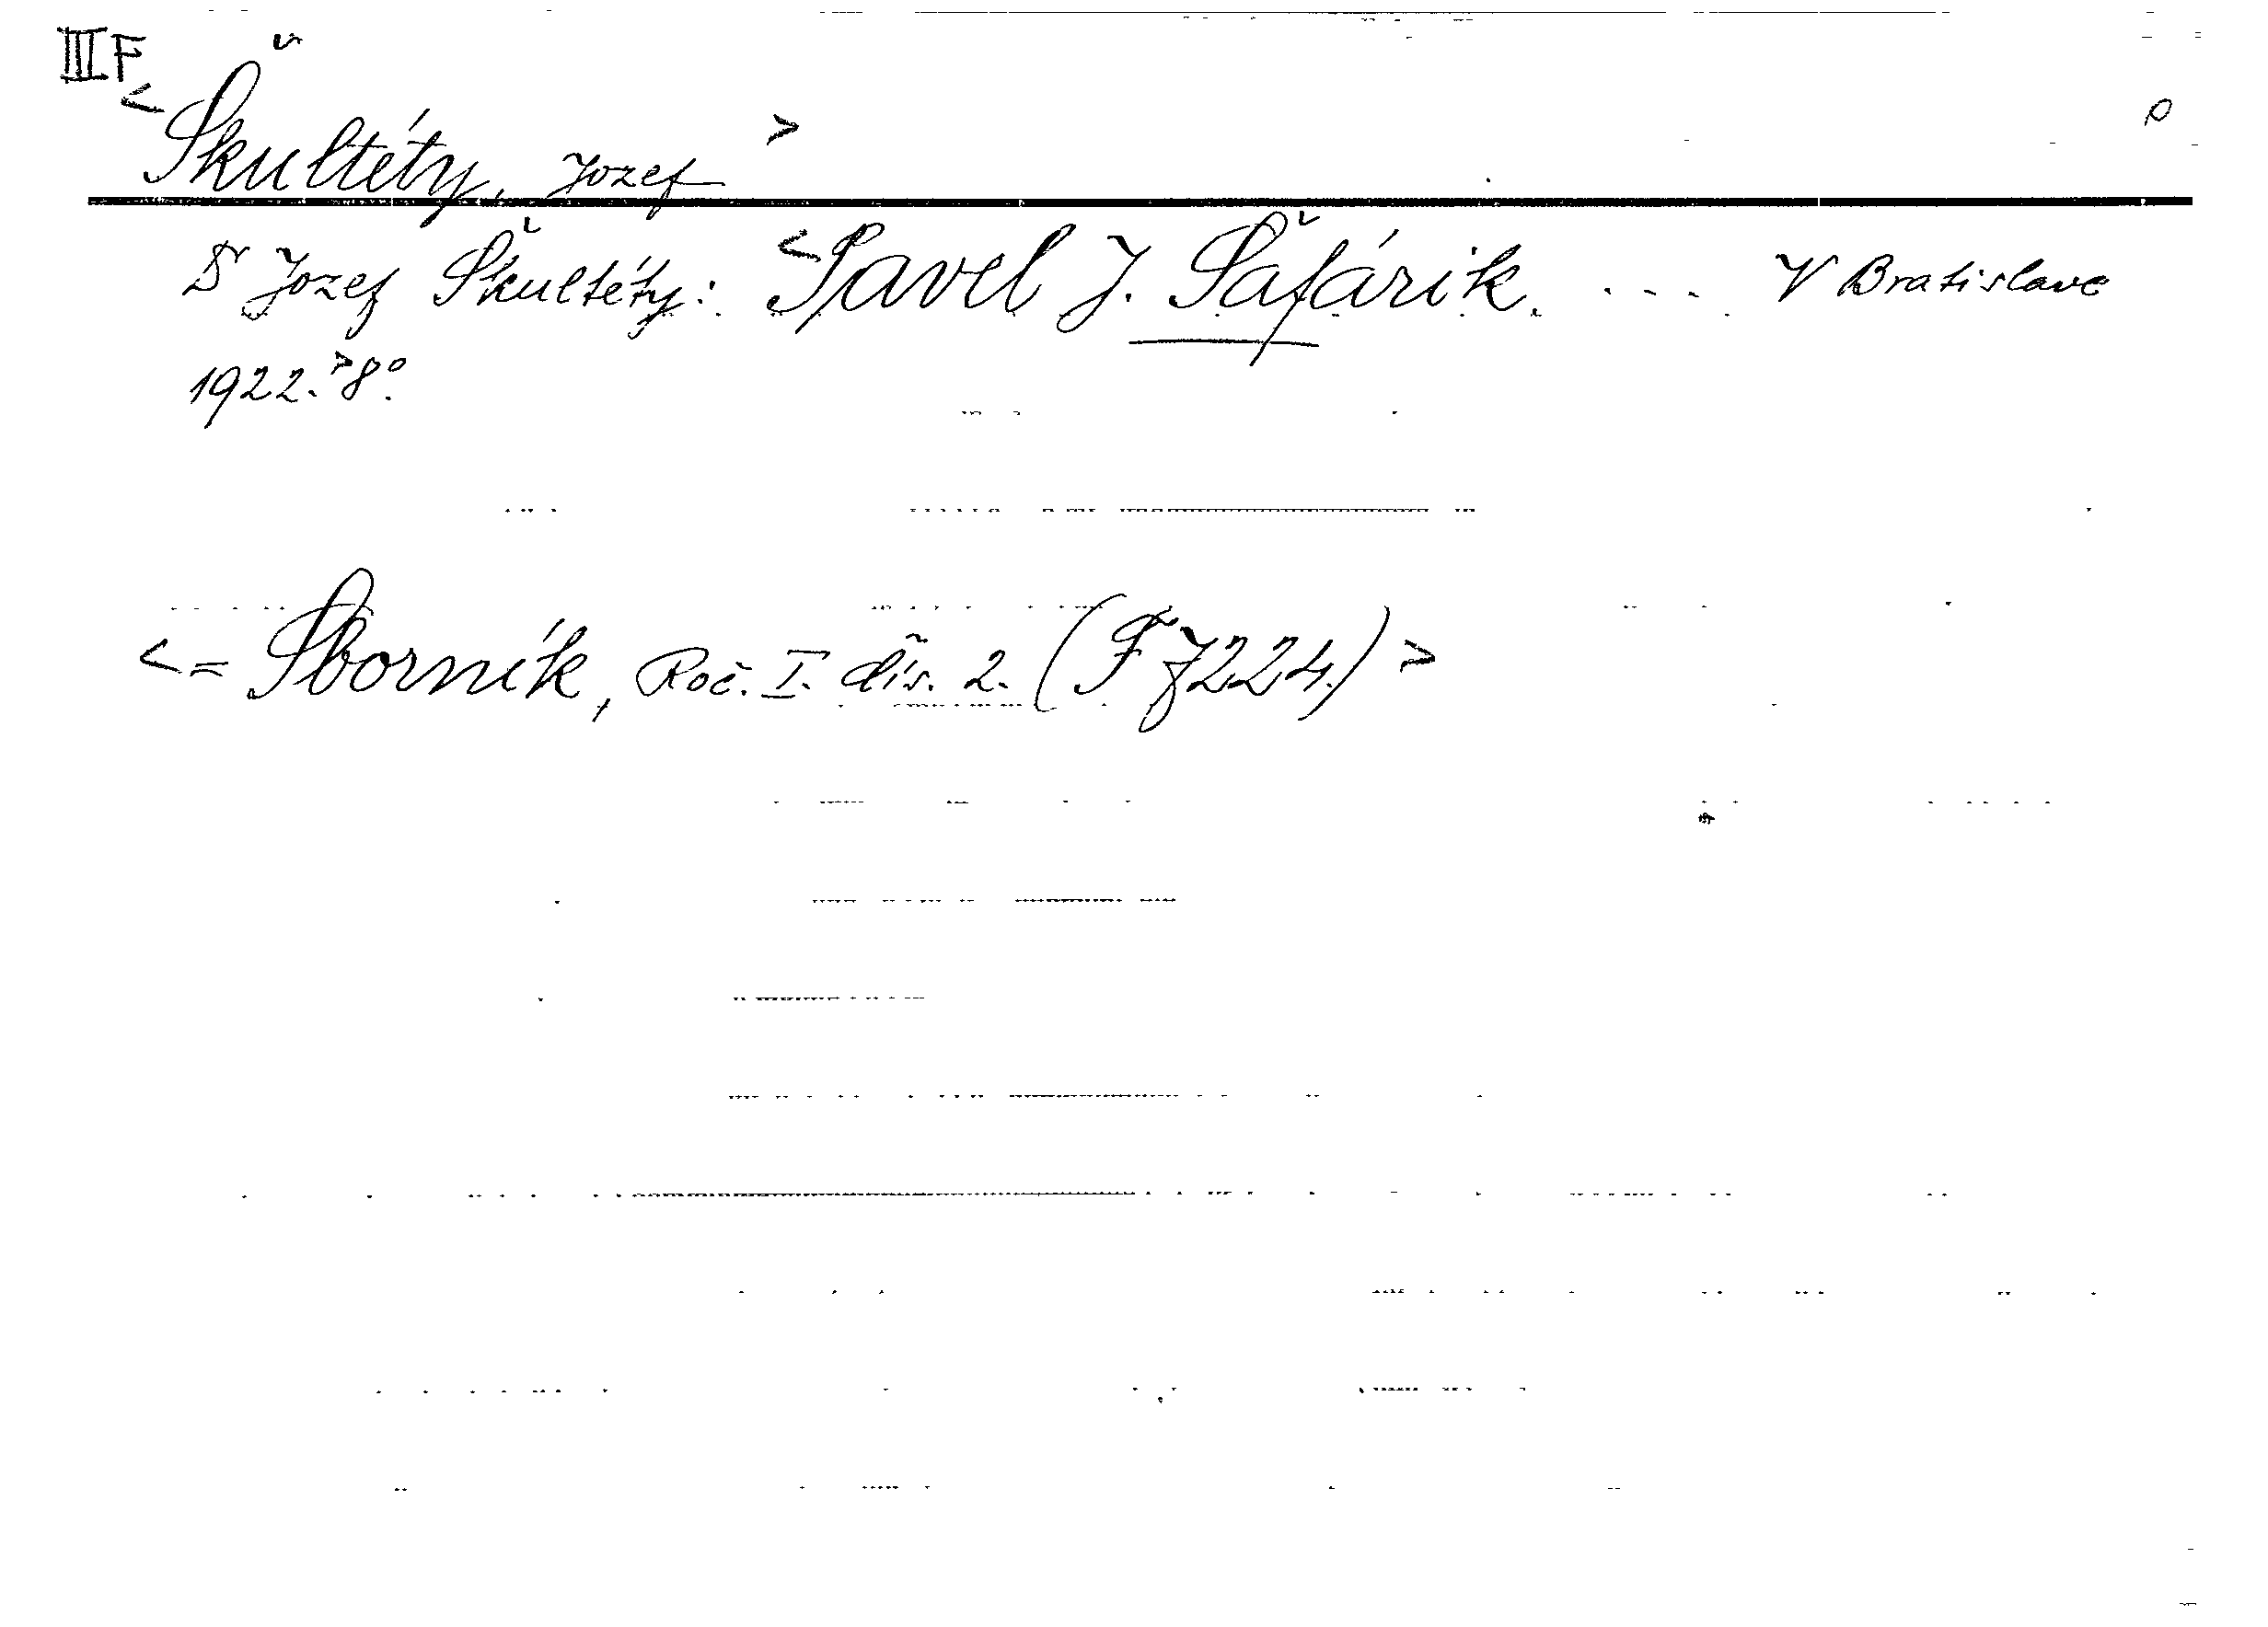 III F
<Škultéty, Jozef>
Dr Jozef Škultéty: <Pavel J. Šafárik. ... V Bratislave
1922.> 8°.
<= Sborník, Roč. I. čís. 2. (F 7224.)>